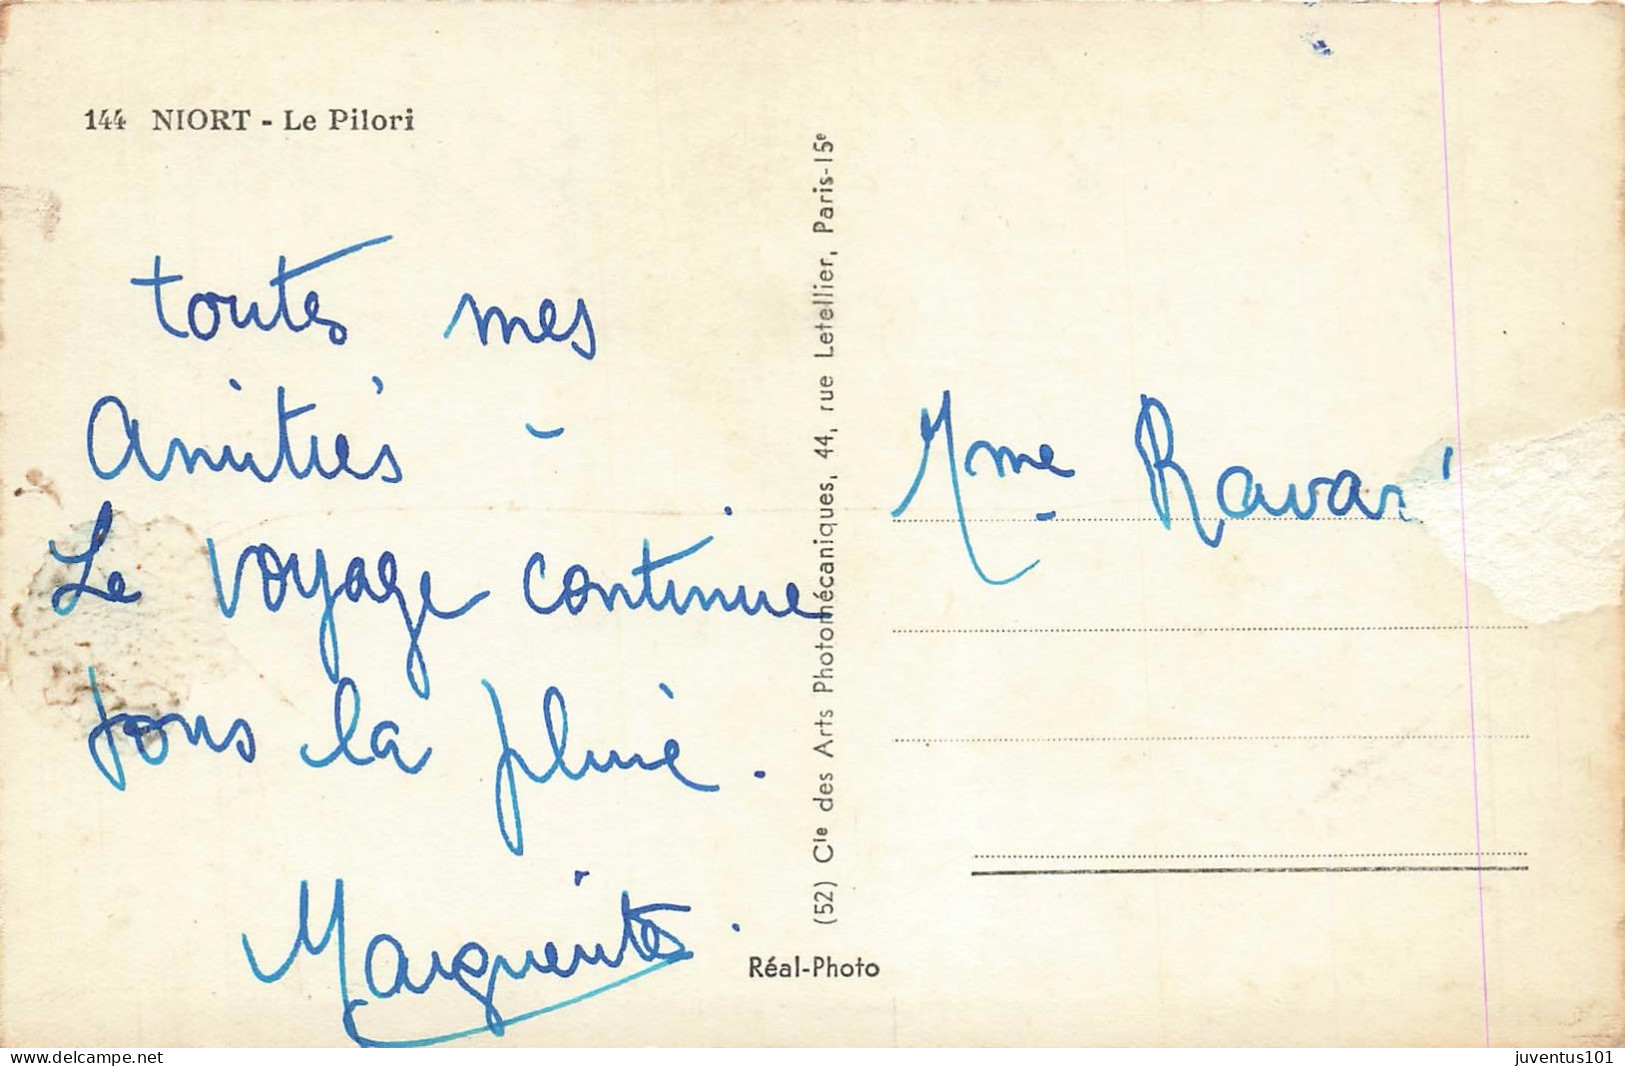 144 NIORT - Le Pilori
toutes mes
amitiés -
Le voyage continue
sous la pluie.
Marguerite.
(52) Cie des Arts Photomécaniques, 44, rue Letellier, Paris-15e
Réal-Photo
Mme
delcampe.net
juventus101